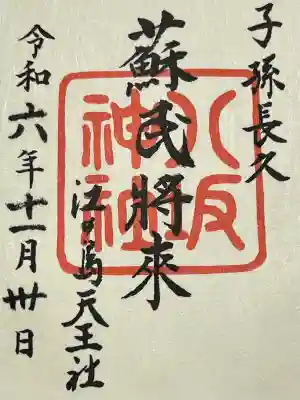 子孫長久
蘇民將來
八坂神社
江の島天王社
令和六年十一月卅日